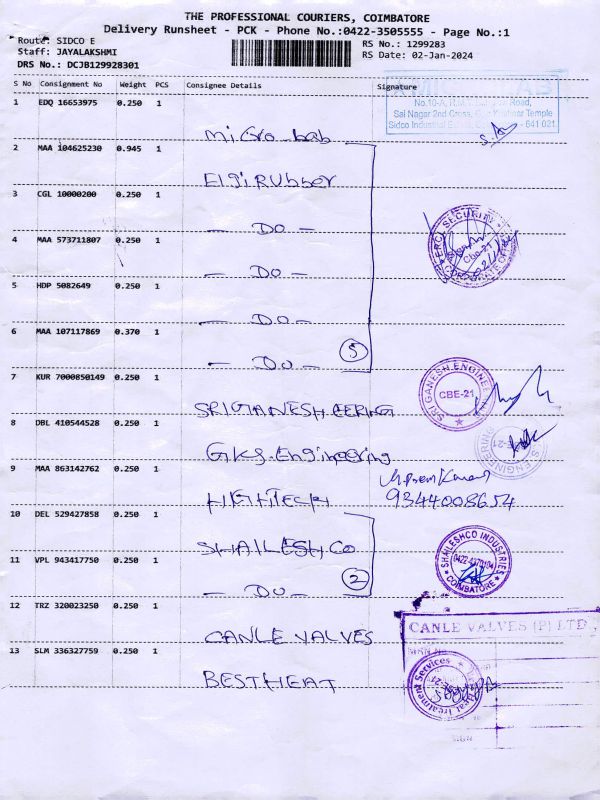 THE PROFESSIONAL COURIERS, COIMBATORE
Delivery Runsheet - PCK - Phone No.:0422-3505555 - Page No.:1
Route: SIDCO E
Staff: JAYALAKSHMI
DRS No.: DCJB129928301
RS No.: 1299283
RS Date: 02-Jan-2024
S No Consignment No Weight PCS Consignee Details Signature
1 EDQ 16653975 0.250 1
Micro Lab
No.10-A,
Road,
Sai Nagar 2nd Cross, Temple
Sidco Industrial - 641 021.
2 MAA 104625230 0.945 1
Elgi Rubber
3 CGL 10000200 0.250 1
- Do -
4 MAA 573711807 0.250 1
- Do -
SECURITY
Cbe-21
5 HDP 5082649 0.250 1
- Do -
6 MAA 107117869 0.370 1
- Do - 5
7 KUR 7000850149 0.250 1
SRI GANESH EERING
SRI GANESH ENGINEERING
CBE-21
8 DBL 410544528 0.250 1
GKS Engineering
ENGINEERING
9 MAA 863142762 0.250 1
HIGHTECH
9344008654
10 DEL 529427858 0.250 1
SHAILESHCO
SHAILESHCO INDUSTRIES
COIMBATORE
11 VPL 943417750 0.250 1
- Do - 2
12 TRZ 320023250 0.250 1
CANLE VALVES
CANLE VALVES (P) LTD
13 SLM 336327759 0.250 1
BESTHEAT
Heat Treatment Services